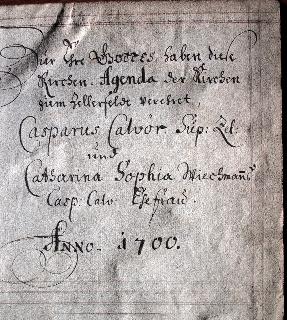 Zur Ehre Gottes haben diese
Kirchen-Agenda der Kirchen
zum Zellerfeldt verehret,
Casparus Calvör Sup: Zel:
und
Catharina Sophia Wiechmañs
Casp: Calv: Ehefrau.
ANNO. 1700.